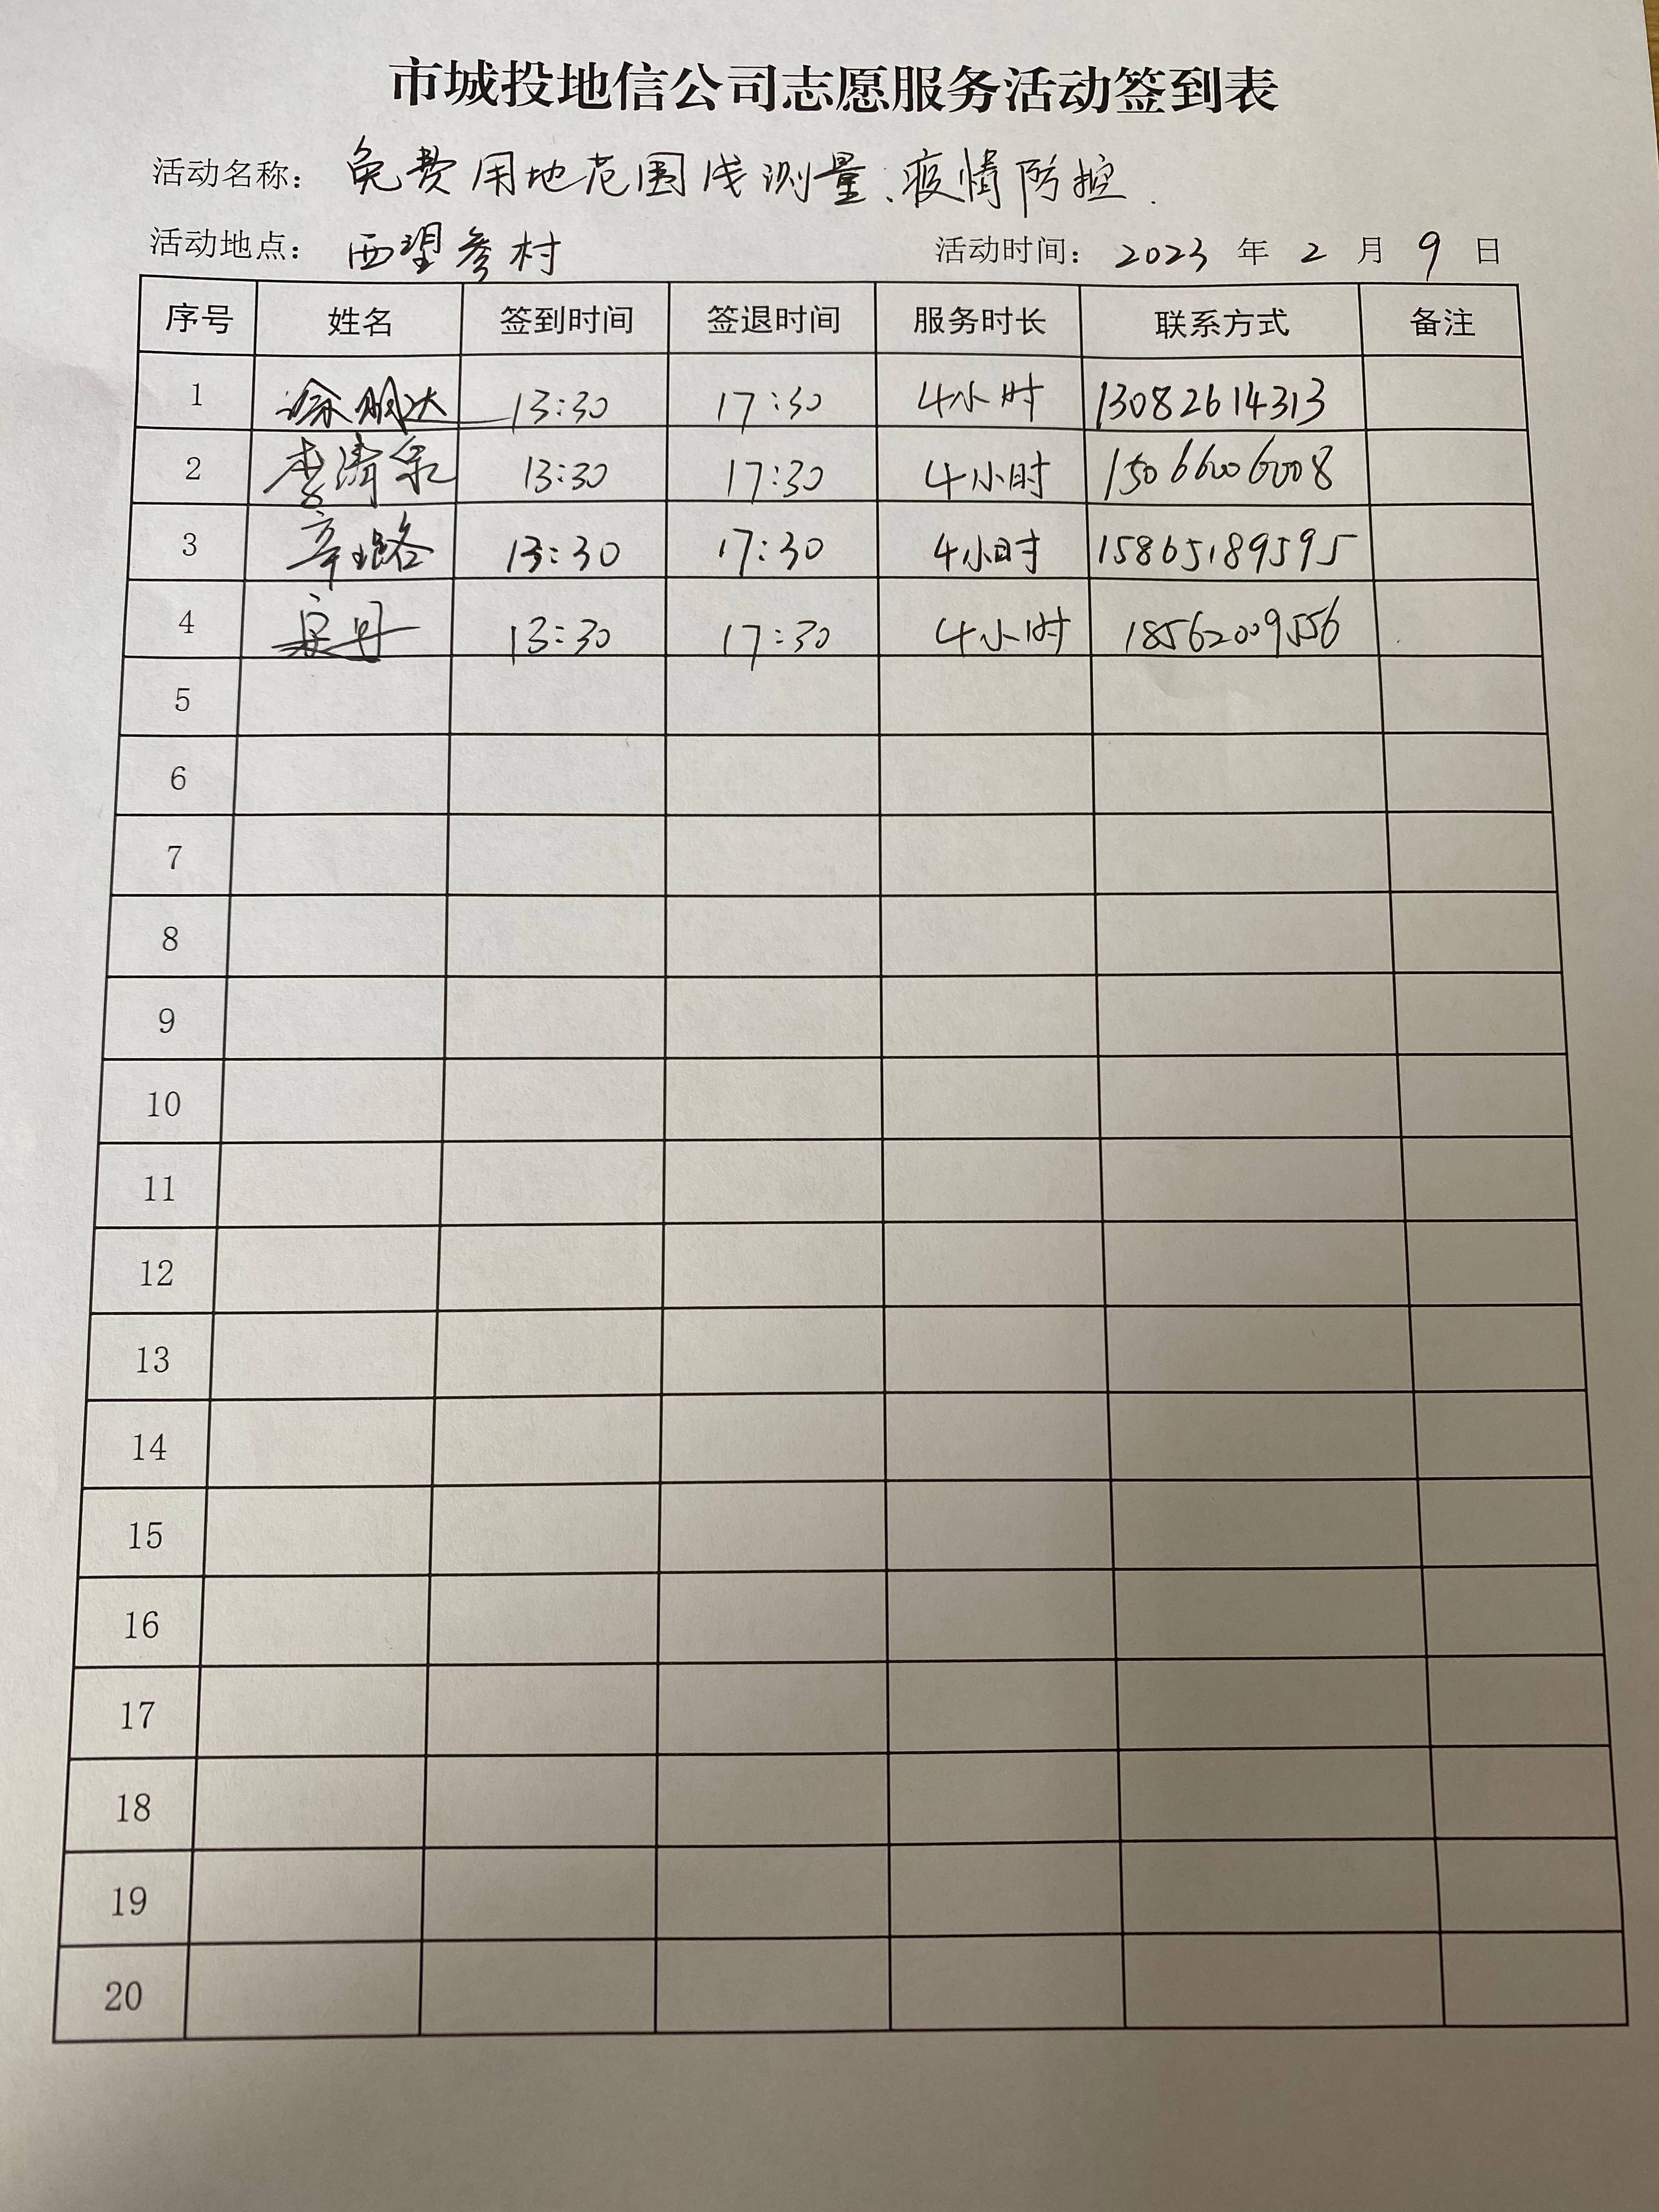 市城投地信公司志愿服务活动签到表
活动名称: 免费用地范围线测量、疫情防控.
活动地点: 西望参村 活动时间: 2023 年 2 月 9 日
序号 姓名 签到时间 签退时间 服务时长 联系方式 备注
1 明达 13:30 17:30 4小时 13082614313
2 李清泉 13:30 17:30 4小时 15066006008
3 辛璐 13:30 17:30 4小时 15865189595
4 13:30 17:30 4小时 18562009556
5
6
7
8
9
10
11
12
13
14
15
16
17
18
19
20